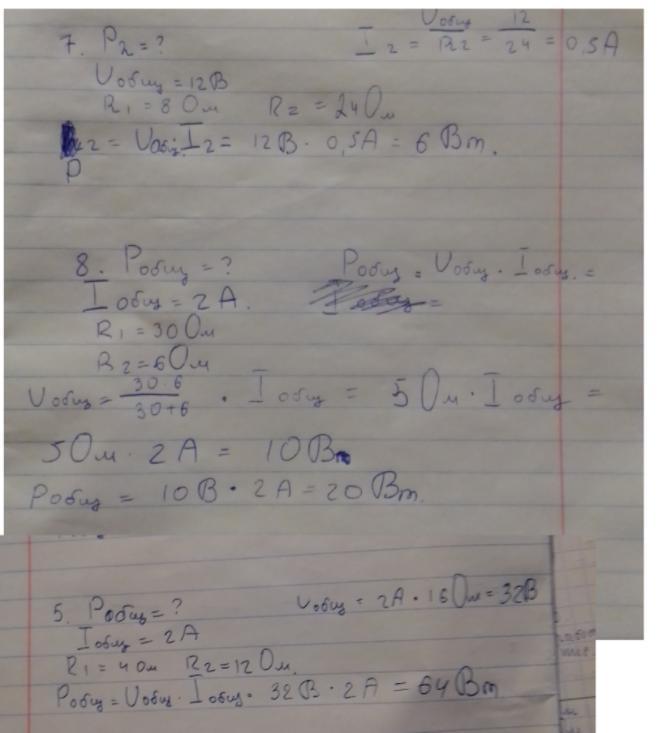 7. P₂ = ?
I₂ = Uобщ/R₂ = 12/24 = 0,5А
Uобщ = 12В
R₁ = 8 Ом R₂ = 24 Ом
₂ = Uобщ · I₂ = 12В · 0,5А = 6 Вт.
P
8. Pобщ = ?
Pобщ = Uобщ · Iобщ. =
Iобщ = 2А.
R₁ = 30 Ом
R₂ = 6 Ом
Uобщ = 30·6/30+6 · Iобщ = 5 Ом · Iобщ =
5 Ом · 2А = 10В
Pобщ = 10В · 2А = 20 Вт.
5. Pобщ = ?
Uобщ = 2А · 16 Ом = 32В
Iобщ = 2А
R₁ = 4 Ом R₂ = 12 Ом.
Pобщ = Uобщ · Iобщ · 32В · 2А = 64 Вт